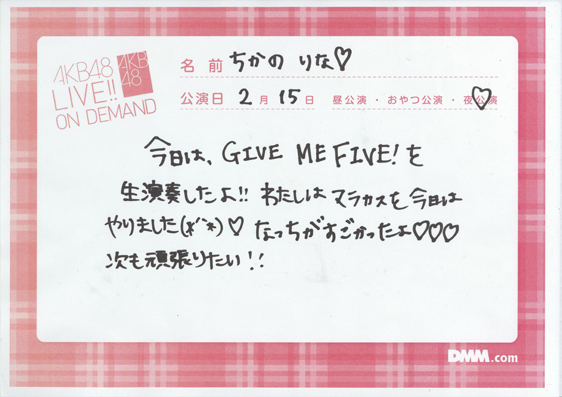 AKB48
LIVE!!
ON DEMAND
AKB
48
名 前 ちかの りな♡
公演日 2 月 15 日 昼公演・おやつ公演・夜公演
今日は、GIVE ME FIVE!を
生演奏したよ!! わたしは マラカスを 今日は
やりました(*´`*)♡ なっちがすごかったよ♡♡♡
次も頑張りたい!!
DMM.com